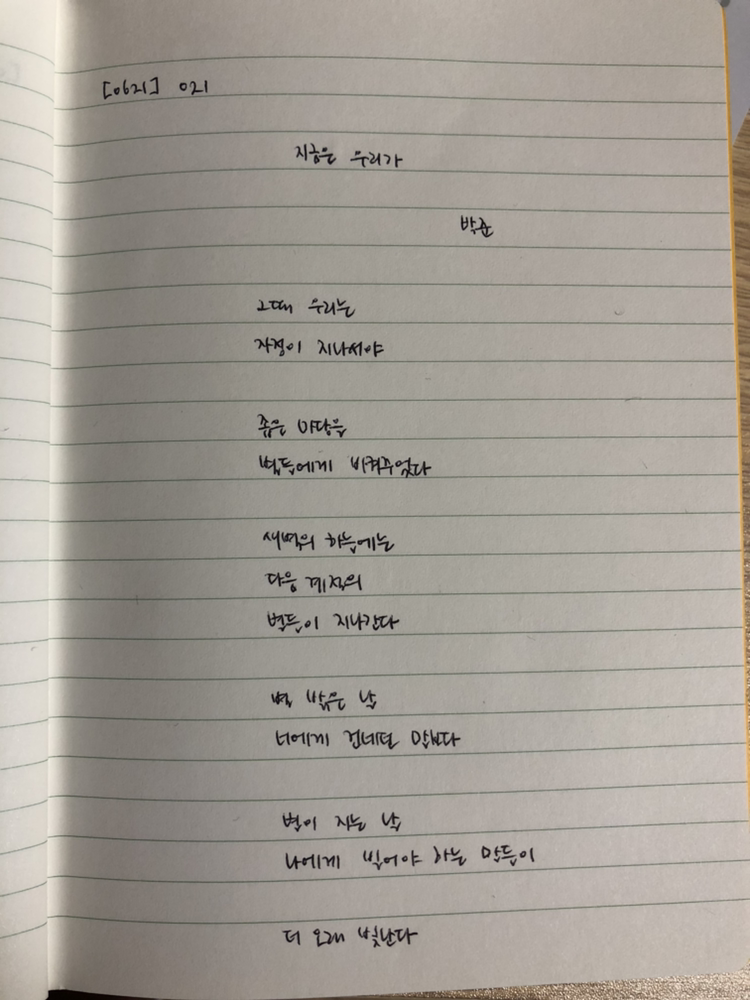 [0621] 021
지금은 우리가
박준
그때 우리는
자정이 지나서야
좁은 마당을
별들에게 비켜주었다
새벽의 하늘에는
다음 계절의
별들이 지나간다
별 밝은 날
너에게 건네던 말보다
별이 지는 날
나에게 빌어야 하는 말들이
더 오래 빛난다